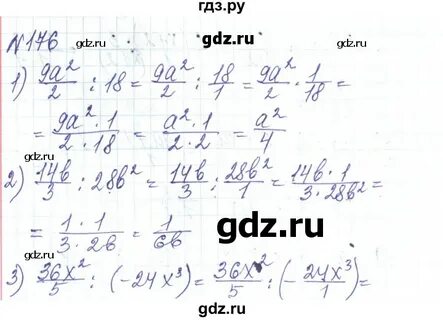 гдз.ру
gdz.ru
№176
1) 9a²/2 : 18 = 9a²/2 : 18/1 = 9a²/2 · 1/18 =
= 9a²·1/2·18 = a²·1/2·2 = a²/4
2) 14b/3 : 28b² = 14b/3 : 28b²/1 = 14b·1/3·28b² =
= 1·1/3·2b = 1/6b
gdz.ru
3) 36x²/5 : (-24x³) = 36x²/5 : (-24x³/1) =
gdz.ru